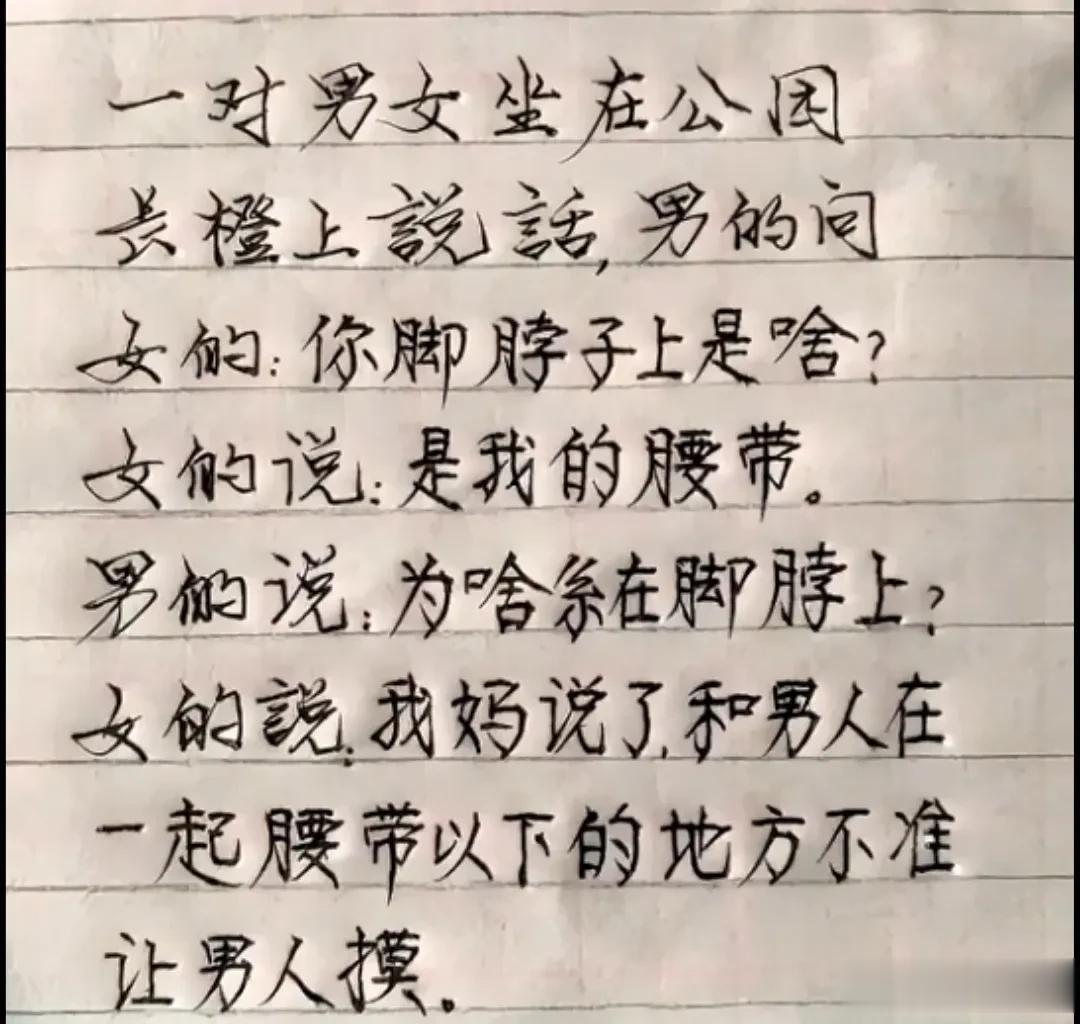 一对男女坐在公园
长橙上説話,男的问
女的:你脚脖子上是啥?
女的说:是我的腰带。
男的说:为啥系在脚脖上?
女的説:我妈说了,和男人在
一起腰带以下的地方不准
让男人摸。